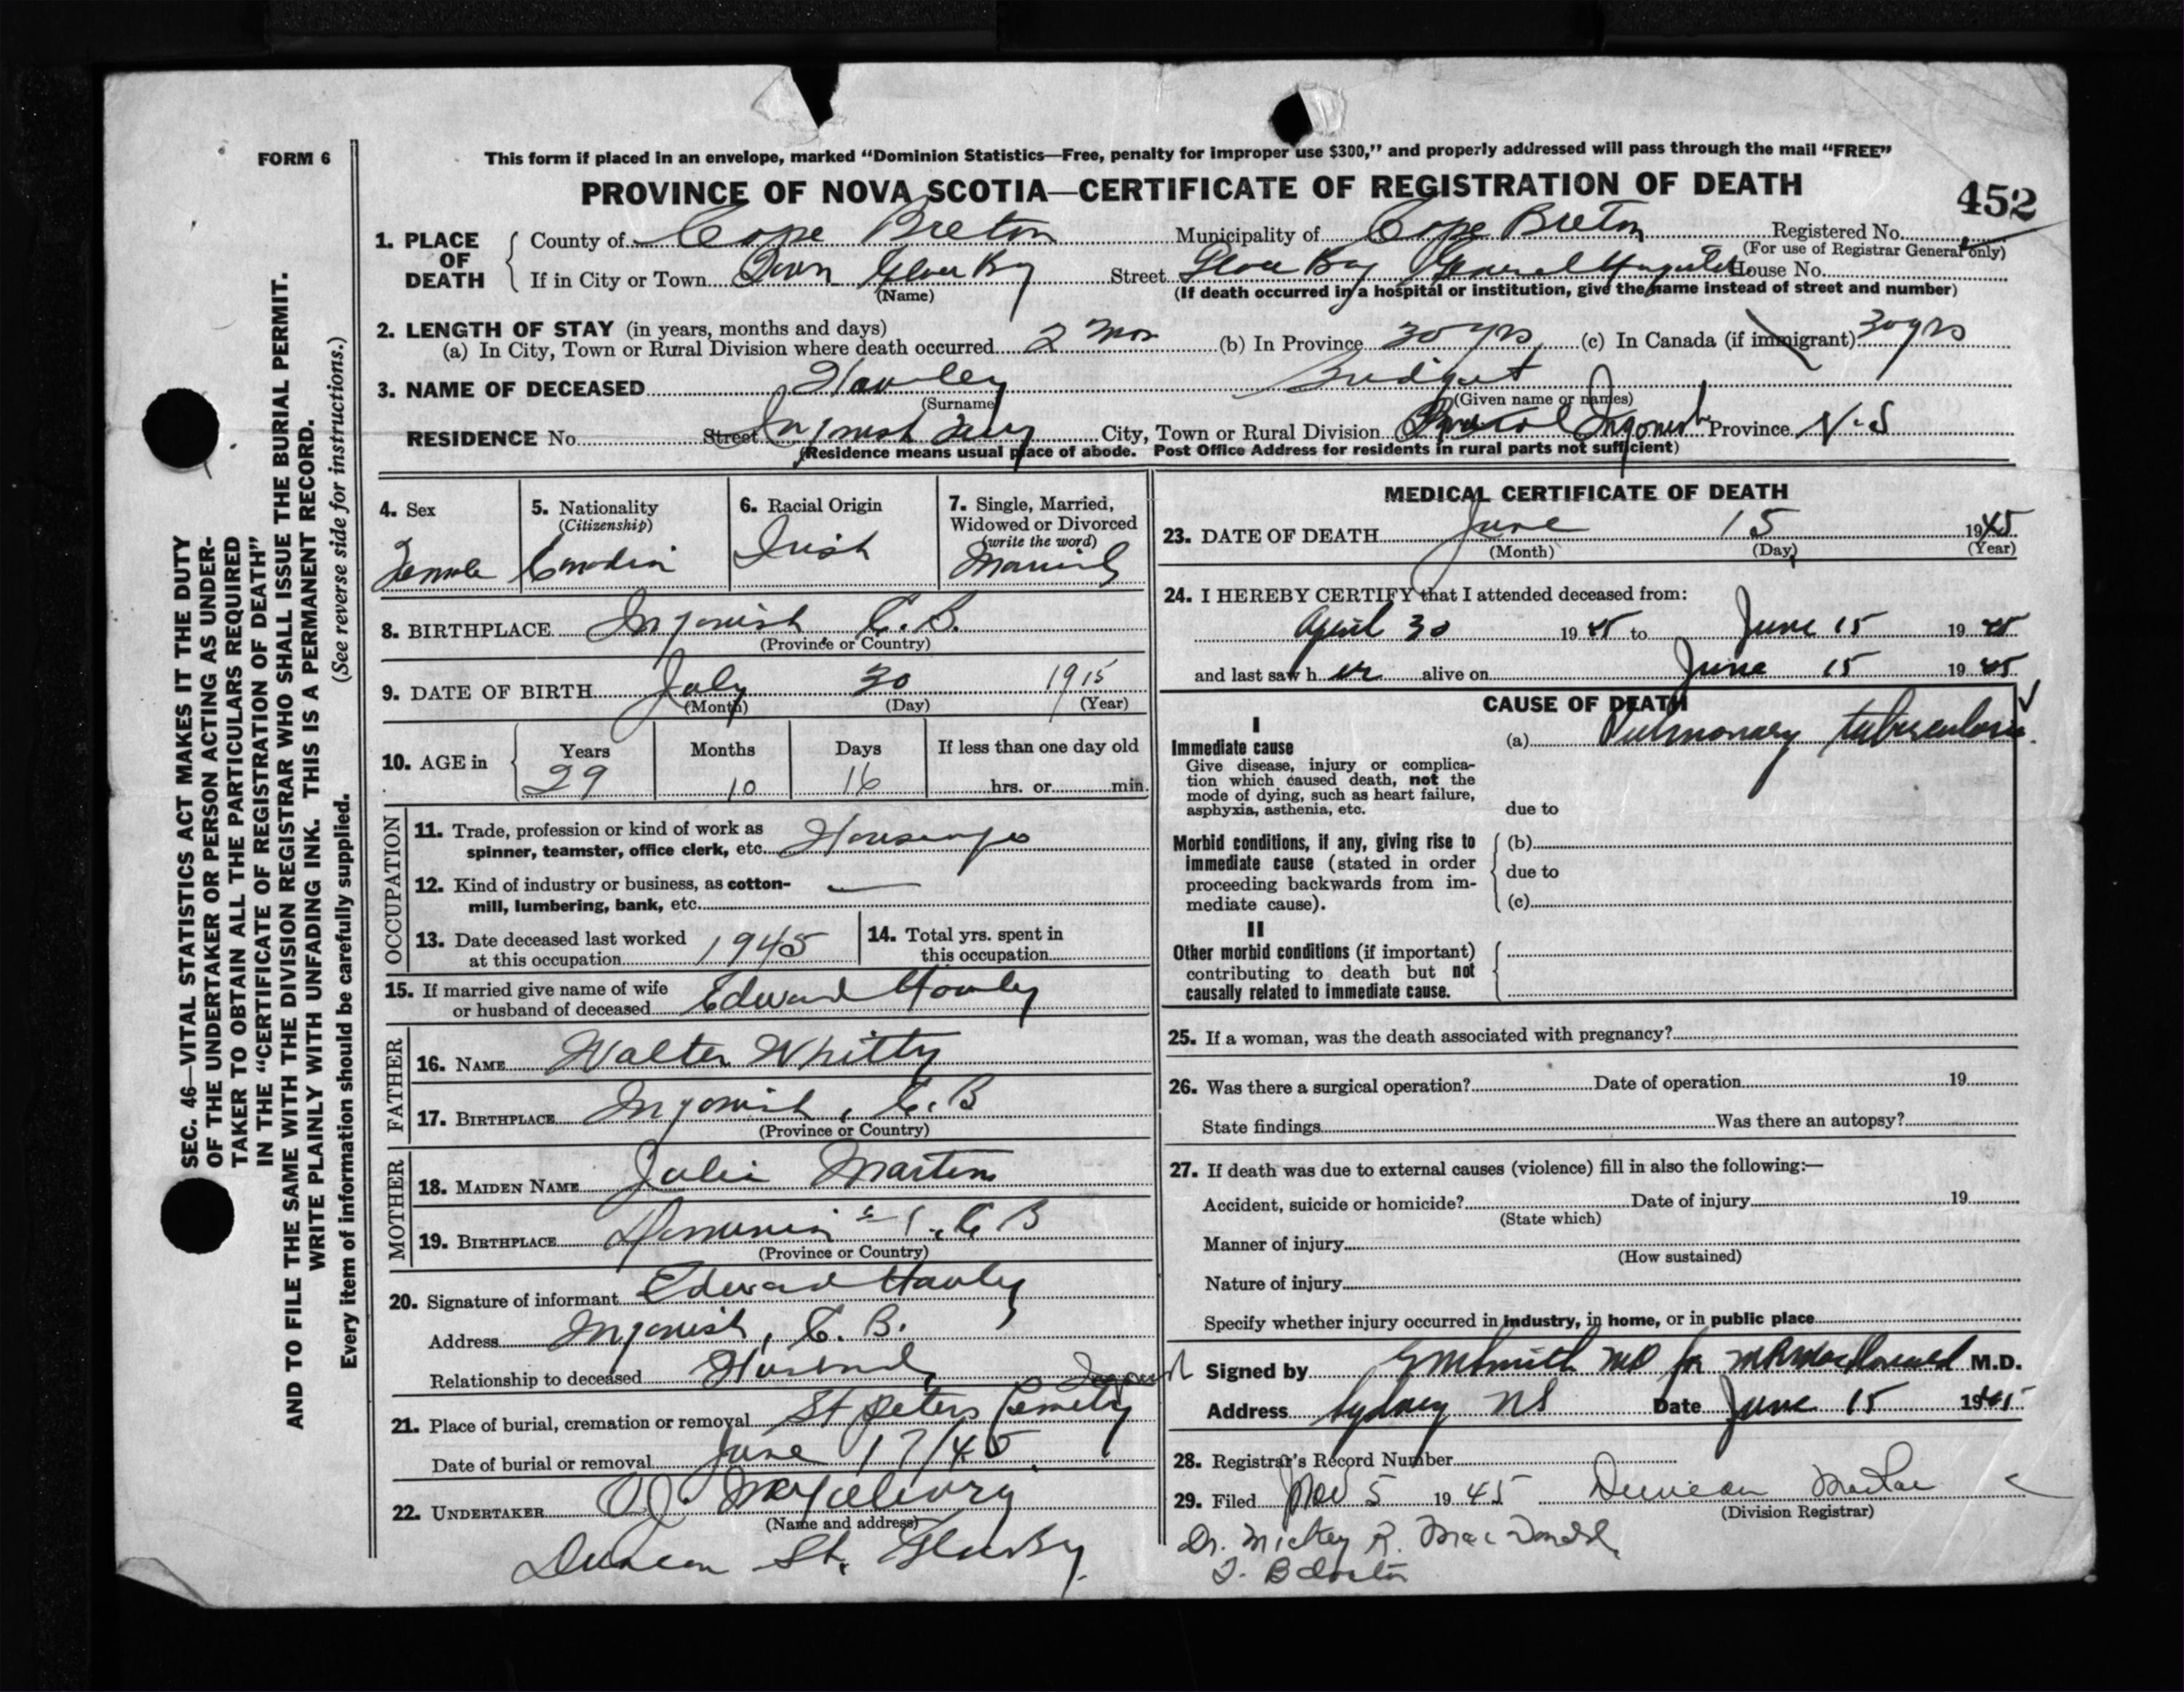 FORM 6
This form if placed in an envelope, marked "Dominion Statistics—Free, penalty for improper use $300," and properly addressed will pass through the mail "FREE"
PROVINCE OF NOVA SCOTIA—CERTIFICATE OF REGISTRATION OF DEATH
452
1. PLACE OF DEATH
County of Cape Breton Municipality of Cape Breton Registered No.
(For use of Registrar General only)
If in City or Town Town Glace Bay Street Glace Bay General Hospital House No.
(Name)
(If death occurred in a hospital or institution, give the name instead of street and number)
2. LENGTH OF STAY (in years, months and days)
(a) In City, Town or Rural Division where death occurred 2 mos (b) In Province 30 yrs (c) In Canada (if immigrant) 30 yrs
3. NAME OF DECEASED Hawley Bridget
(Surname) (Given name or names)
RESIDENCE No. Street Ingonish Ferry City, Town or Rural Division Ingonish Province N.S
(Residence means usual place of abode. Post Office Address for residents in rural parts not sufficient)
4. Sex
Female
5. Nationality
(Citizenship)
Canadian
6. Racial Origin
Irish
7. Single, Married,
Widowed or Divorced
(write the word)
Married
8. BIRTHPLACE Ingonish C.B.
(Province or Country)
9. DATE OF BIRTH July 30 1915
(Month) (Day) (Year)
10. AGE in
Years Months Days If less than one day old
29 10 16 hrs. or min.
OCCUPATION
11. Trade, profession or kind of work as
spinner, teamster, office clerk, etc. Housewife
12. Kind of industry or business, as cotton-
mill, lumbering, bank, etc. —
13. Date deceased last worked
at this occupation 1945
14. Total yrs. spent in
this occupation
15. If married give name of wife
or husband of deceased Edward Hawley
FATHER
16. NAME Walter Whitty
17. BIRTHPLACE Ingonish, C.B
(Province or Country)
MOTHER
18. MAIDEN NAME Julia Martin
19. BIRTHPLACE Dominion 1, C B
(Province or Country)
20. Signature of informant Edward Hawley
Address Ingonish, C.B.
Relationship to deceased Husband
Ingonish
21. Place of burial, cremation or removal St Peters Cemetery
Date of burial or removal June 17/45
22. UNDERTAKER
(Name and address)
Duncan St. Glace Bay.
MEDICAL CERTIFICATE OF DEATH
23. DATE OF DEATH June 15 1945
(Month) (Day) (Year)
24. I HEREBY CERTIFY that I attended deceased from:
April 30 1945 to June 15 1945
and last saw h er alive on June 15 1945
CAUSE OF DEATH
I
Immediate cause
Give disease, injury or complica-
tion which caused death, not the
mode of dying, such as heart failure,
asphyxia, asthenia, etc.
(a) Pulmonary tuberculosis.
due to
Morbid conditions, if any, giving rise to
immediate cause (stated in order
proceeding backwards from im-
mediate cause).
(b)
due to
(c)
II
Other morbid conditions (if important)
contributing to death but not
causally related to immediate cause.
25. If a woman, was the death associated with pregnancy?
26. Was there a surgical operation? Date of operation 19
State findings Was there an autopsy?
27. If death was due to external causes (violence) fill in also the following:—
Accident, suicide or homicide? Date of injury 19
(State which)
Manner of injury
(How sustained)
Nature of injury
Specify whether injury occurred in industry, in home, or in public place
Signed by Smith MD for M R MacDonald M.D.
Address Sydney NS Date June 15 1945
28. Registrar's Record Number
29. Filed Nov 5 1945 Duncan MacRae
(Division Registrar)
Dr. Mickey R. MacDonald,
T. B doctor
SEC. 46—VITAL STATISTICS ACT MAKES IT THE DUTY
OF THE UNDERTAKER OR PERSON ACTING AS UNDER-
TAKER TO OBTAIN ALL THE PARTICULARS REQUIRED
IN THE "CERTIFICATE OF REGISTRATION OF DEATH"
AND TO FILE THE SAME WITH THE DIVISION REGISTRAR WHO SHALL ISSUE THE BURIAL PERMIT.
WRITE PLAINLY WITH UNFADING INK. THIS IS A PERMANENT RECORD.
Every item of information should be carefully supplied. (See reverse side for instructions.)